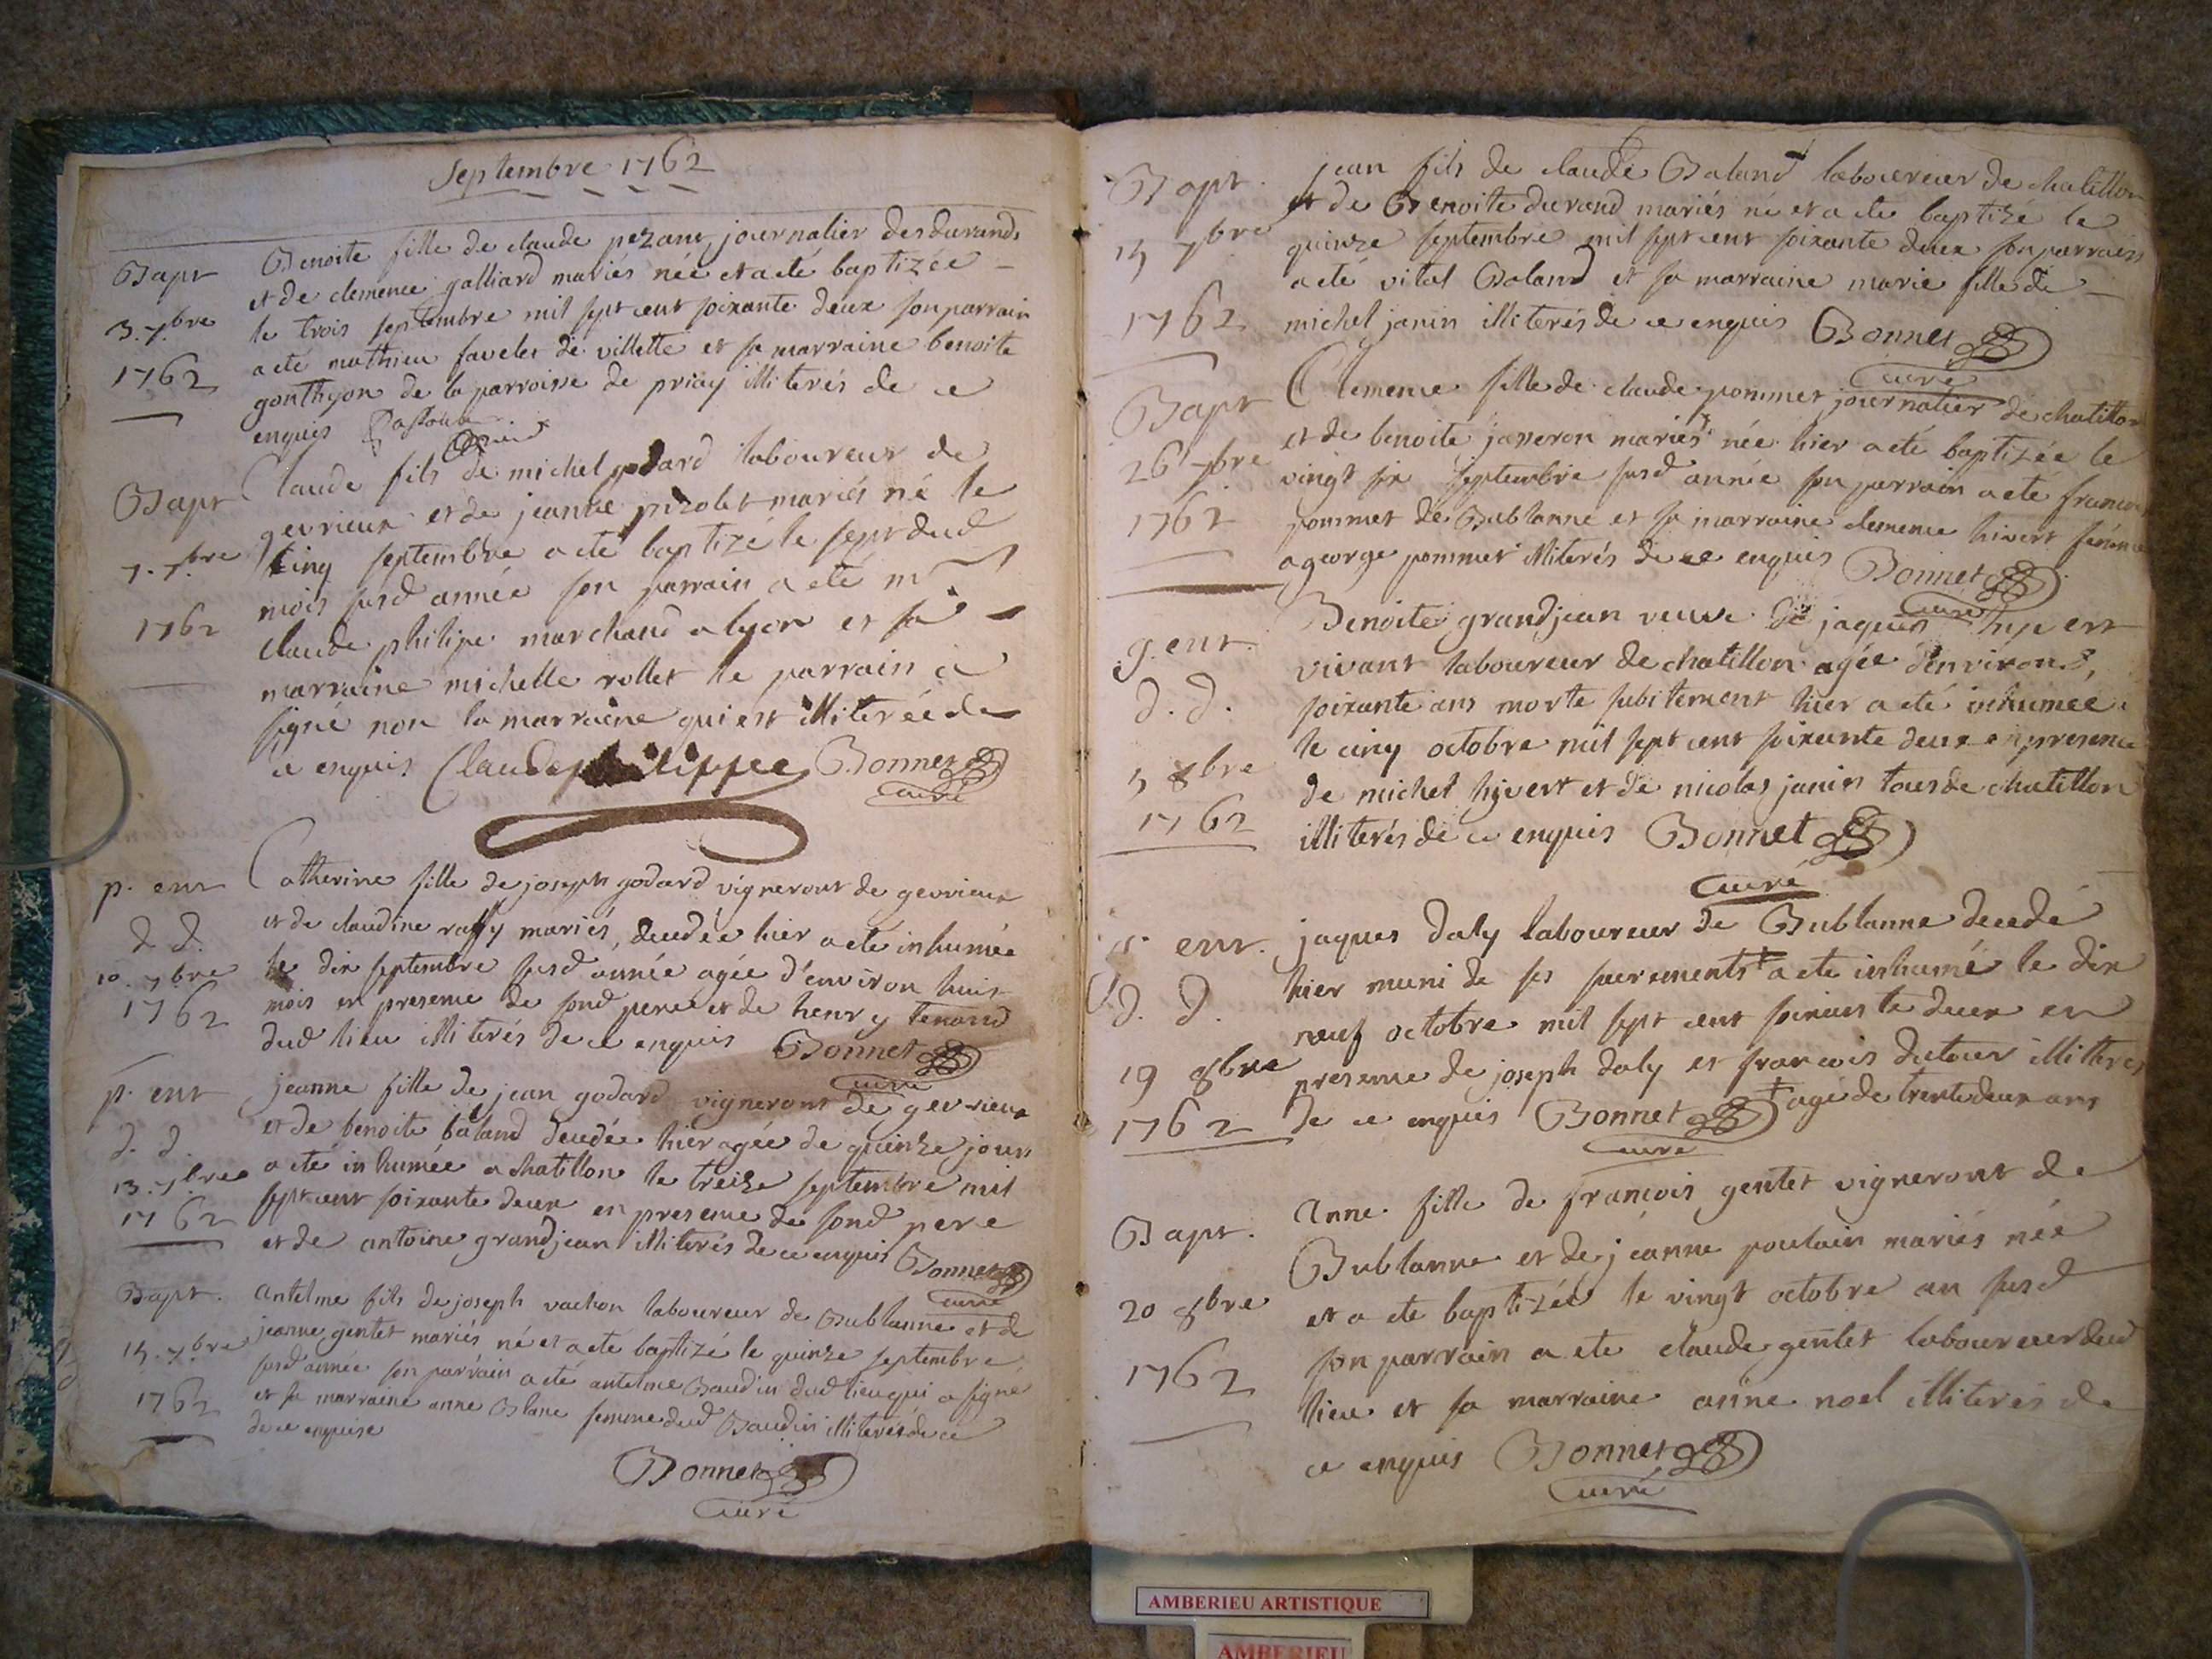 Septembre 1762
Bapt
3. 7.bre
1762
Benoite fille de claude pezant journalier des durands
et de clemence galliard mariés née et a eté baptizée
le trois septembre mil sept cent soixante deux son parrain
a eté mathieu favelet de villette et sa marraine benoite
gonthyon de la parroisse de priay illiterés de ce
enquis
Bapt
7. 7.bre
1762
Claude fils de michel godard laboureur de
gevrieux et de jeanne pizolet mariés né le
cinq septembre a eté baptizé le sept dud
mois susd année son parrain a eté m
claude philipe marchand a lyon et sa
marraine michelle rollet le parrain a
signé non la marraine qui est illiterée de
ce enquis Claude philippe Bonnet
curé
p. ent
d. d.
10. 7bre
1762
Catherine fille de joseph godard vigneront de gevrieux
et de claudine raffy mariés, decedée hier a eté inhumée
le dix septembre susd année agée d'environ huit
mois en presence de sond pere et de henry tenand
dud lieu illiterés de ce enquis Bonnet
curé
p. ent
d. d.
13. 7.bre
1762
jeanne fille de jean godard vigneront de gevrieux
et de benoite baland decedée hier agée de quinze jours
a eté inhumée a chatillon le treize septembre mil
sept cent soixante deux en presence de sond pere
et de antoine grandjean illiterés de ce enquis Bonnet
curé
Bapt.
15. 7.bre
1762
antelme fils de joseph vachon laboureur de Bublanne et de
jeanne gentet mariés né et a eté baptizé le quinze septembre
susd année son parrain a eté antelme Baudin dud lieu qui a signé
et sa marraine anne Blanc femme dud Baudin illiterés de ce
de ce enquise
Bonnet
curé
Bapt.
15 7bre
1762
jean fils de claude Baland laboureur de chatillon
et de Benoite durand mariés né et a eté baptizé le
quinze septembre mil sept cent soixante deux son parrain
a eté vital Baland et sa marraine marie fille de
michel janin illiterés de ce enquis Bonnet
curé
Bapt
26 7bre
1762
Clemence fille de claude pommet journalier de chatillon
et de benoite janneron mariés née hier a eté baptizée le
vingt six septembre susd année son parrain a eté francois
pommet de Bublanne et sa marraine clemence hivert
a george pommet illiterés de ce enquis Bonnet
curé
g. ent.
d. d.
5 8bre
1762
Benoite grandjean veuve de jaques hyvert
vivant laboureur de chatillon agée d'environ
soixante ans morte subitement hier a eté inhumée
le cinq octobre mil sept cent soixante deux en presence
de michel hyvert et de nicolas janin tous de chatillon
illiterés de ce enquis Bonnet
curé
ent.
d. d.
19 8bre
1762
jaques daly laboureur de Bublanne decedé
hier muni de ses sacrements ‡ a eté inhumé le dix
neuf octobre mil sept cent soixante deux en
presence de joseph daly et francois dutour illiterés
de ce enquis Bonnet ‡ agé de trente deux ans
curé
Bapt.
20 8bre
1762
Anne fille de francois gentet vigneront de
Bublanne et de jeanne poulain mariés née
et a eté baptizée le vingt octobre an susd
son parrain a eté claude gentet laboureur dud
lieu et sa marraine anne noel illiterés de
ce enquis Bonnet
curé
AMBERIEU ARTISTIQUE
AMBERIEU